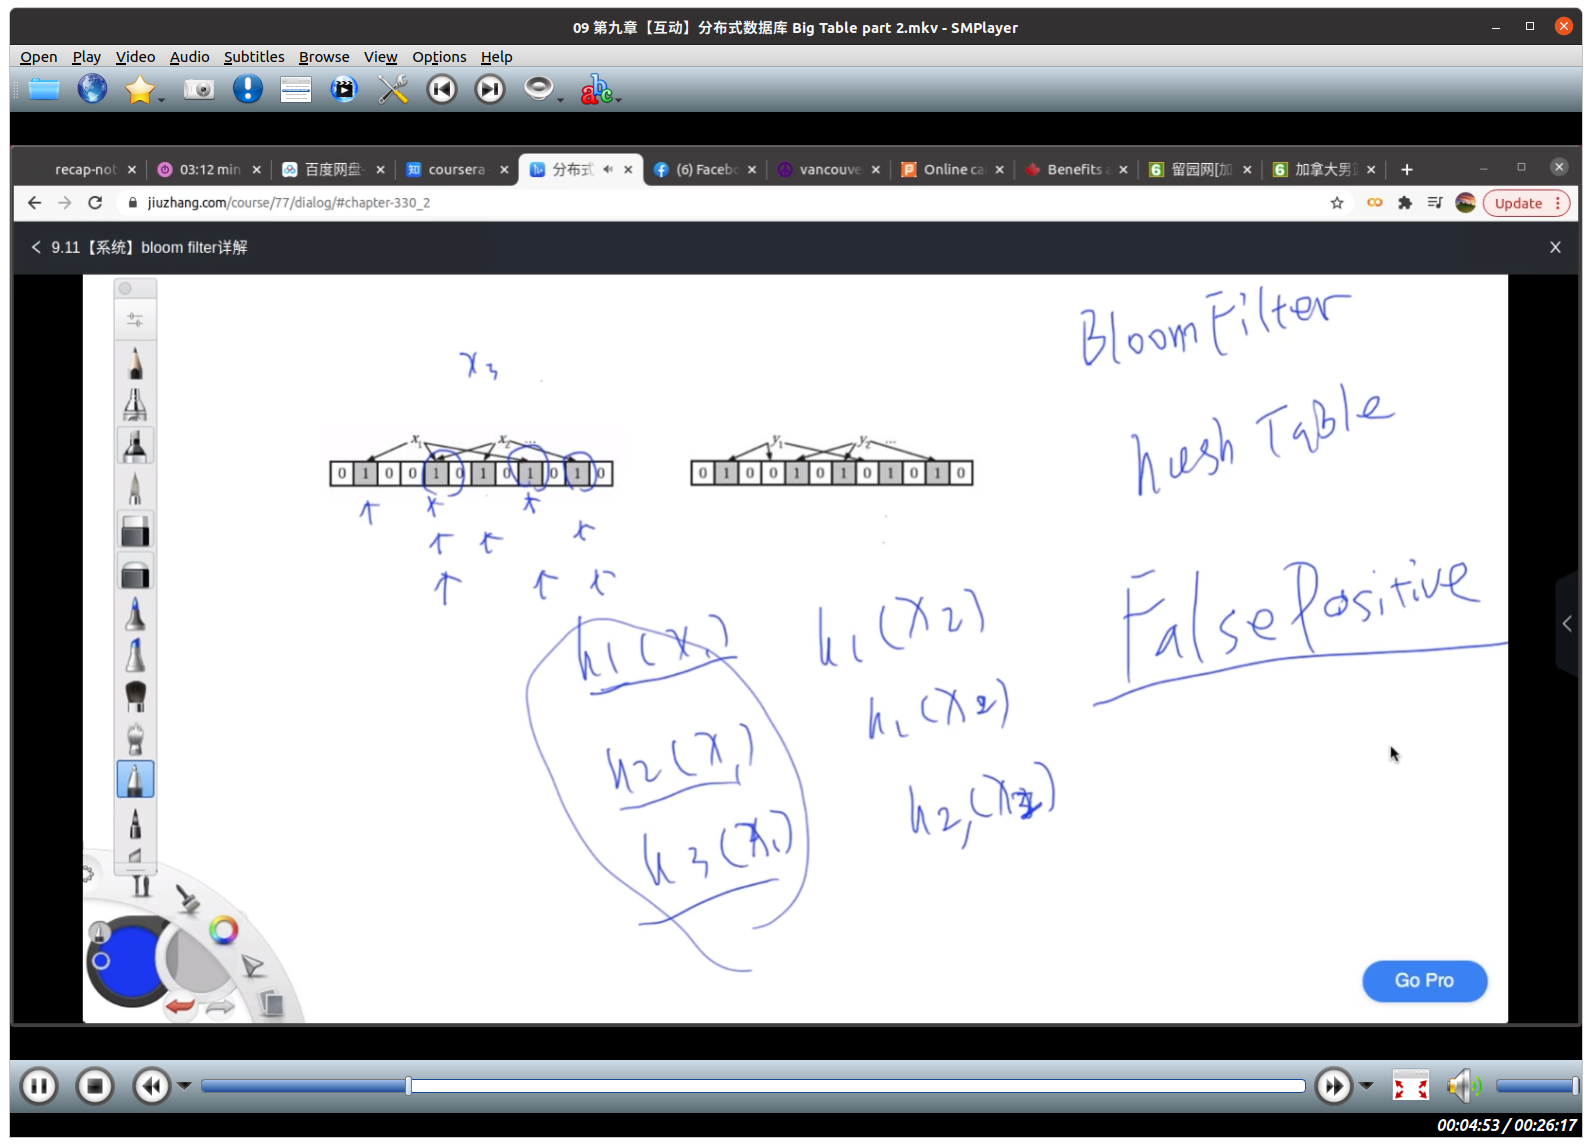 09 第九章【互动】分布式数据库 Big Table part 2.mkv - SMPlayer
Open Play Video Audio Subtitles Browse View Options Help
abc
recap-not 03:12 min 百度网盘- 知 coursera 分布式 (6) Facebo vancouve Online cal Benefits a 6 留园网[加 6 加拿大男
jiuzhang.com/course/77/dialog/#chapter-330_2 Update
9.11【系统】bloom filter详解
Bloom Filter
x3
hash Table
x1 x2 ...
y1 y2 ...
0 1 0 0 1 0 1 0 1 0 1 0
0 1 0 0 1 0 1 0 1 0 1 0
False Positive
h1(x1) h1(x2)
h2(x1)
h3(x1)
Go Pro
00:04:53 / 00:26:17